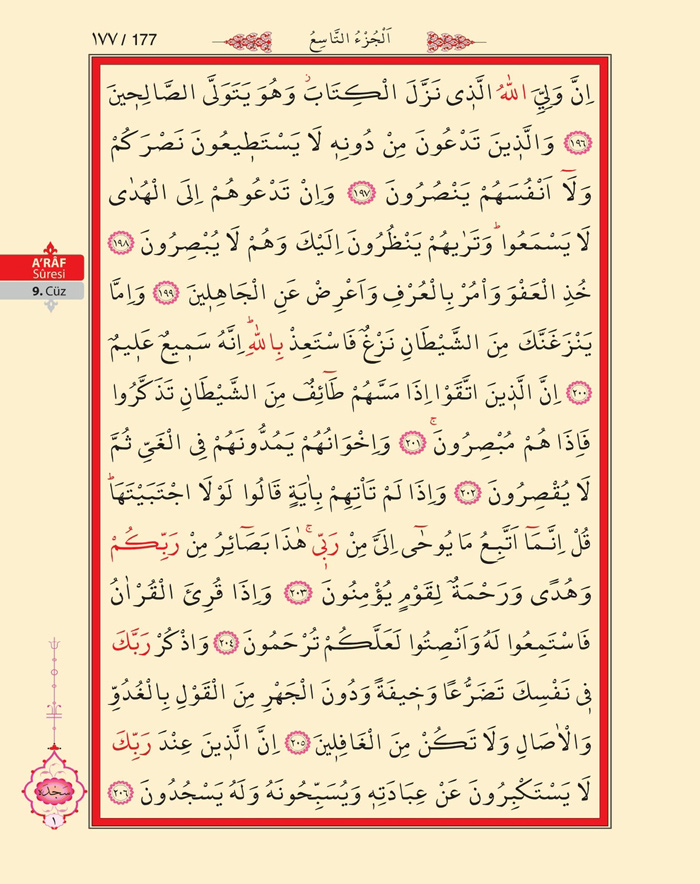 ١٧٧ / 177
اَلْجُزْءُ التَّاسِعُ
اِنَّ وَلِيِّيَ اللّٰهُ الَّذ۪ي نَزَّلَ الْكِتَابَۘ وَهُوَ يَتَوَلَّى الصَّالِح۪ينَ
﴿١٩٦﴾ وَالَّذ۪ينَ تَدْعُونَ مِنْ دُونِه۪ لَا يَسْتَط۪يعُونَ نَصْرَكُمْ
وَلَٓا اَنْفُسَهُمْ يَنْصُرُونَ ﴿١٩٧﴾ وَاِنْ تَدْعُوهُمْ اِلَى الْهُدٰى
لَا يَسْمَعُواۜ وَتَرٰيهُمْ يَنْظُرُونَ اِلَيْكَ وَهُمْ لَا يُبْصِرُونَ ﴿١٩٨﴾
خُذِ الْعَفْوَ وَاْمُرْ بِالْعُرْفِ وَاَعْرِضْ عَنِ الْجَاهِل۪ينَ ﴿١٩٩﴾ وَاِمَّا
يَنْزَغَنَّكَ مِنَ الشَّيْطَانِ نَزْغٌ فَاسْتَعِذْ بِاللّٰهِۜ اِنَّهُ سَم۪يعٌ عَل۪يمٌ
﴿٢٠٠﴾ اِنَّ الَّذ۪ينَ اتَّقَوْا اِذَا مَسَّهُمْ طَٓائِفٌ مِنَ الشَّيْطَانِ تَذَكَّرُوا
فَاِذَا هُمْ مُبْصِرُونَۚ ﴿٢٠١﴾ وَاِخْوَانُهُمْ يَمُدُّونَهُمْ فِي الْغَيِّ ثُمَّ
لَا يُقْصِرُونَ ﴿٢٠٢﴾ وَاِذَا لَمْ تَأْتِهِمْ بِاٰيَةٍ قَالُوا لَوْلَا اجْتَبَيْتَهَاۜ
قُلْ اِنَّمَٓا اَتَّبِعُ مَا يُوحٰٓى اِلَيَّ مِنْ رَبّ۪يۚ هٰذَا بَصَٓائِرُ مِنْ رَبِّكُمْ
وَهُدًى وَرَحْمَةٌ لِقَوْمٍ يُؤْمِنُونَ ﴿٢٠٣﴾ وَاِذَا قُرِئَ الْقُرْاٰنُ
فَاسْتَمِعُوا لَهُ وَاَنْصِتُوا لَعَلَّكُمْ تُرْحَمُونَ ﴿٢٠٤﴾ وَاذْكُرْ رَبَّكَ
ف۪ي نَفْسِكَ تَضَرُّعًا وَخ۪يفَةً وَدُونَ الْجَهْرِ مِنَ الْقَوْلِ بِالْغُدُوِّ
وَالْاٰصَالِ وَلَا تَكُنْ مِنَ الْغَافِل۪ينَ ﴿٢٠٥﴾ اِنَّ الَّذ۪ينَ عِنْدَ رَبِّكَ
لَا يَسْتَكْبِرُونَ عَنْ عِبَادَتِه۪ وَيُسَبِّحُونَهُ وَلَهُ يَسْجُدُونَ ﴿٢٠٦﴾
A'RÂF
Sûresi
9. Cüz
سجده
١